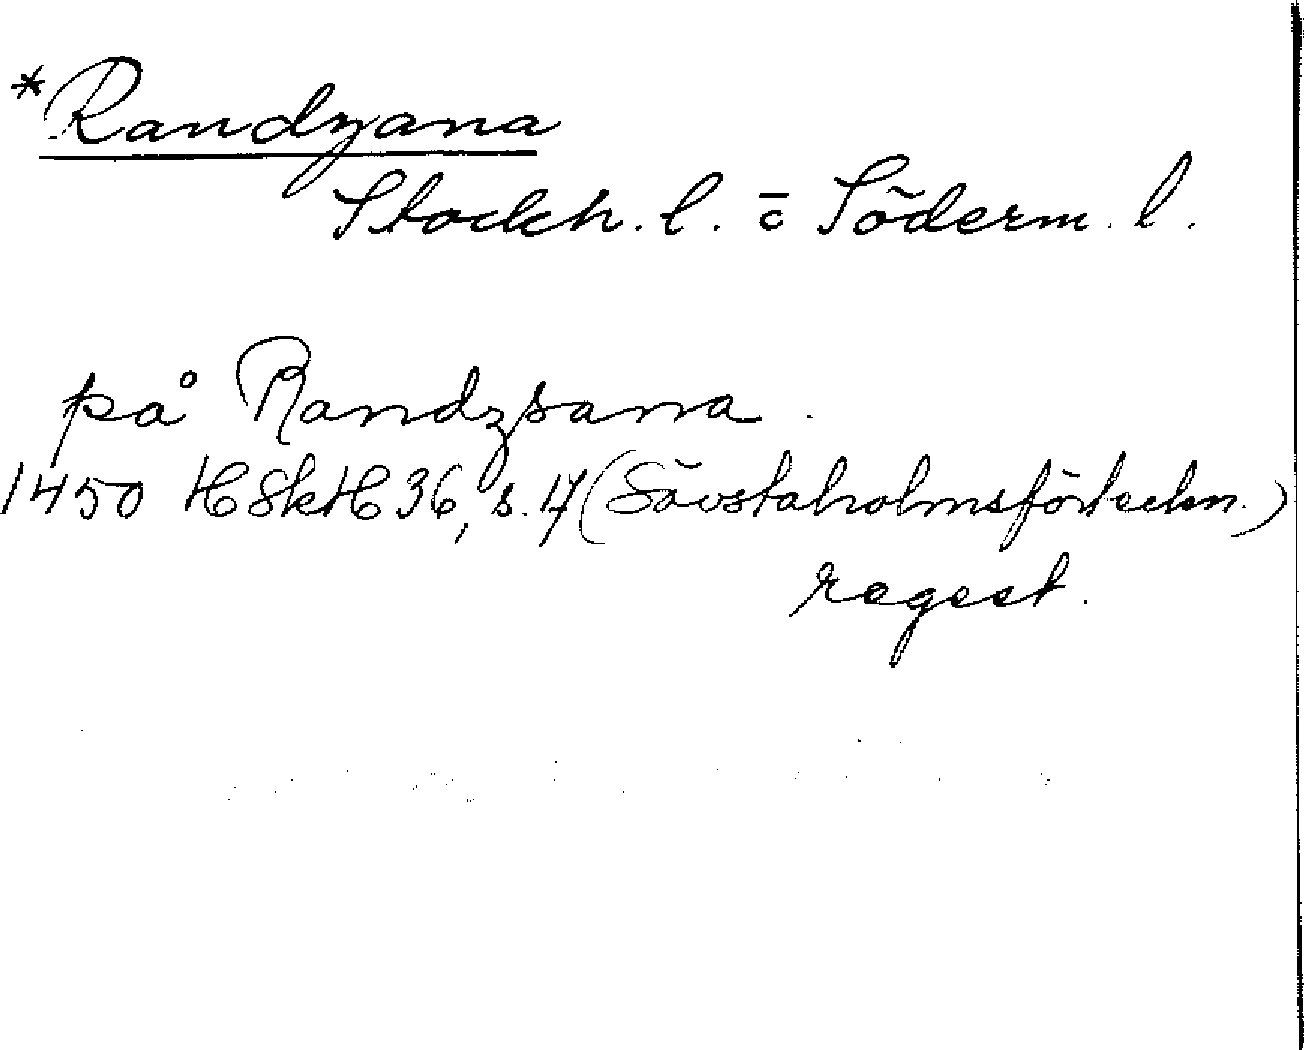 *Randzana
Stockh. l. = Söderm. l.
på Randzsana.
1450 HSkH 36, s. 17 (Sävstaholmsförteckn.)
regest.